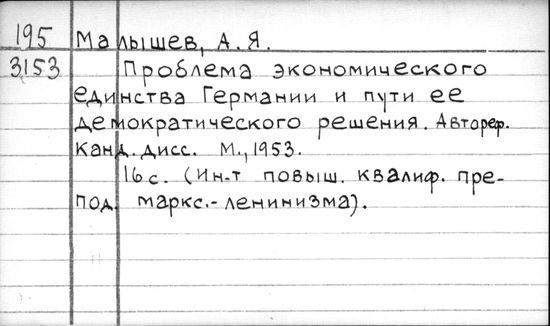 195 Малышев, А.Я.
3153 Проблема экономического
единства Германии и пути ее
демократического решения. Автореф.
канд. дисс. М., 1953.
16 с. (Ин-т повыш. квалиф. пре-
под. маркс.-ленинизма).